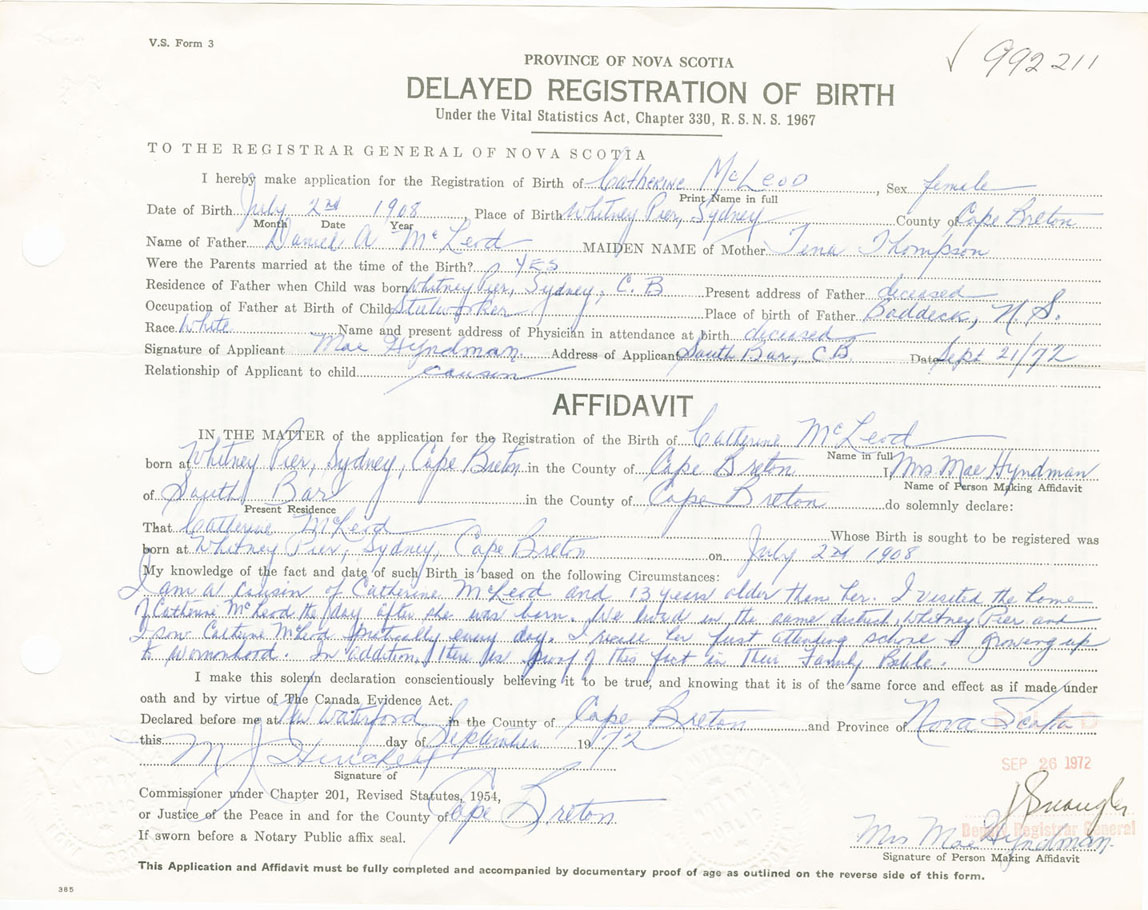 V.S. Form 3
992211
PROVINCE OF NOVA SCOTIA
DELAYED REGISTRATION OF BIRTH
Under the Vital Statistics Act, Chapter 330, R.S.N.S. 1967
TO THE REGISTRAR GENERAL OF NOVA SCOTIA
I hereby make application for the Registration of Birth of Catherine McLeod, Sex female
Print Name in full
Date of Birth July 2nd 1908, Place of Birth Whitney Pier, Sydney County of Cape Breton
Month Date Year
Name of Father Daniel A McLeod MAIDEN NAME of Mother Tena Thompson
Were the Parents married at the time of the Birth? YES
Residence of Father when Child was born Whitney Pier, Sydney, C.B Present address of Father deceased
Occupation of Father at Birth of Child Steelworker Place of birth of Father Baddeck, N.S.
Race White Name and present address of Physician in attendance at birth deceased
Signature of Applicant Mae Hyndman Address of Applicant South Bar, CB Date Sept 21/72
Relationship of Applicant to child cousin
AFFIDAVIT
IN THE MATTER of the application for the Registration of the Birth of Catherine McLeod
Name in full
born at Whitney Pier, Sydney, Cape Breton in the County of Cape Breton I, Mrs Mae Hyndman
Name of Person Making Affidavit
of South Bar in the County of Cape Breton do solemnly declare:
Present Residence
That Catherine McLeod Whose Birth is sought to be registered was
born at Whitney Pier, Sydney, Cape Breton on July 2nd 1908
My knowledge of the fact and date of such Birth is based on the following Circumstances:
I am a cousin of Catherine McLeod and 13 years older than her. I visited the home
of Catherine McLeod the day after she was born. We lived in the same district, Whitney Pier and
I saw Catherine McLeod practically every day. I her first attending school & growing up
to womanhood. In addition, there is proof of this fact in their Family Bible.
I make this solemn declaration conscientiously believing it to be true, and knowing that it is of the same force and effect as if made under
oath and by virtue of The Canada Evidence Act.
Declared before me at New Waterford in the County of Cape Breton and Province of Nova Scotia
this day of September 1972
SEP 26 1972
M J
Signature of
Commissioner under Chapter 201, Revised Statutes, 1954,
or Justice of the Peace in and for the County of Cape Breton
If sworn before a Notary Public affix seal.
Deputy Registrar General
Mrs Mae Hyndman
Signature of Person Making Affidavit
This Application and Affidavit must be fully completed and accompanied by documentary proof of age as outlined on the reverse side of this form.
385